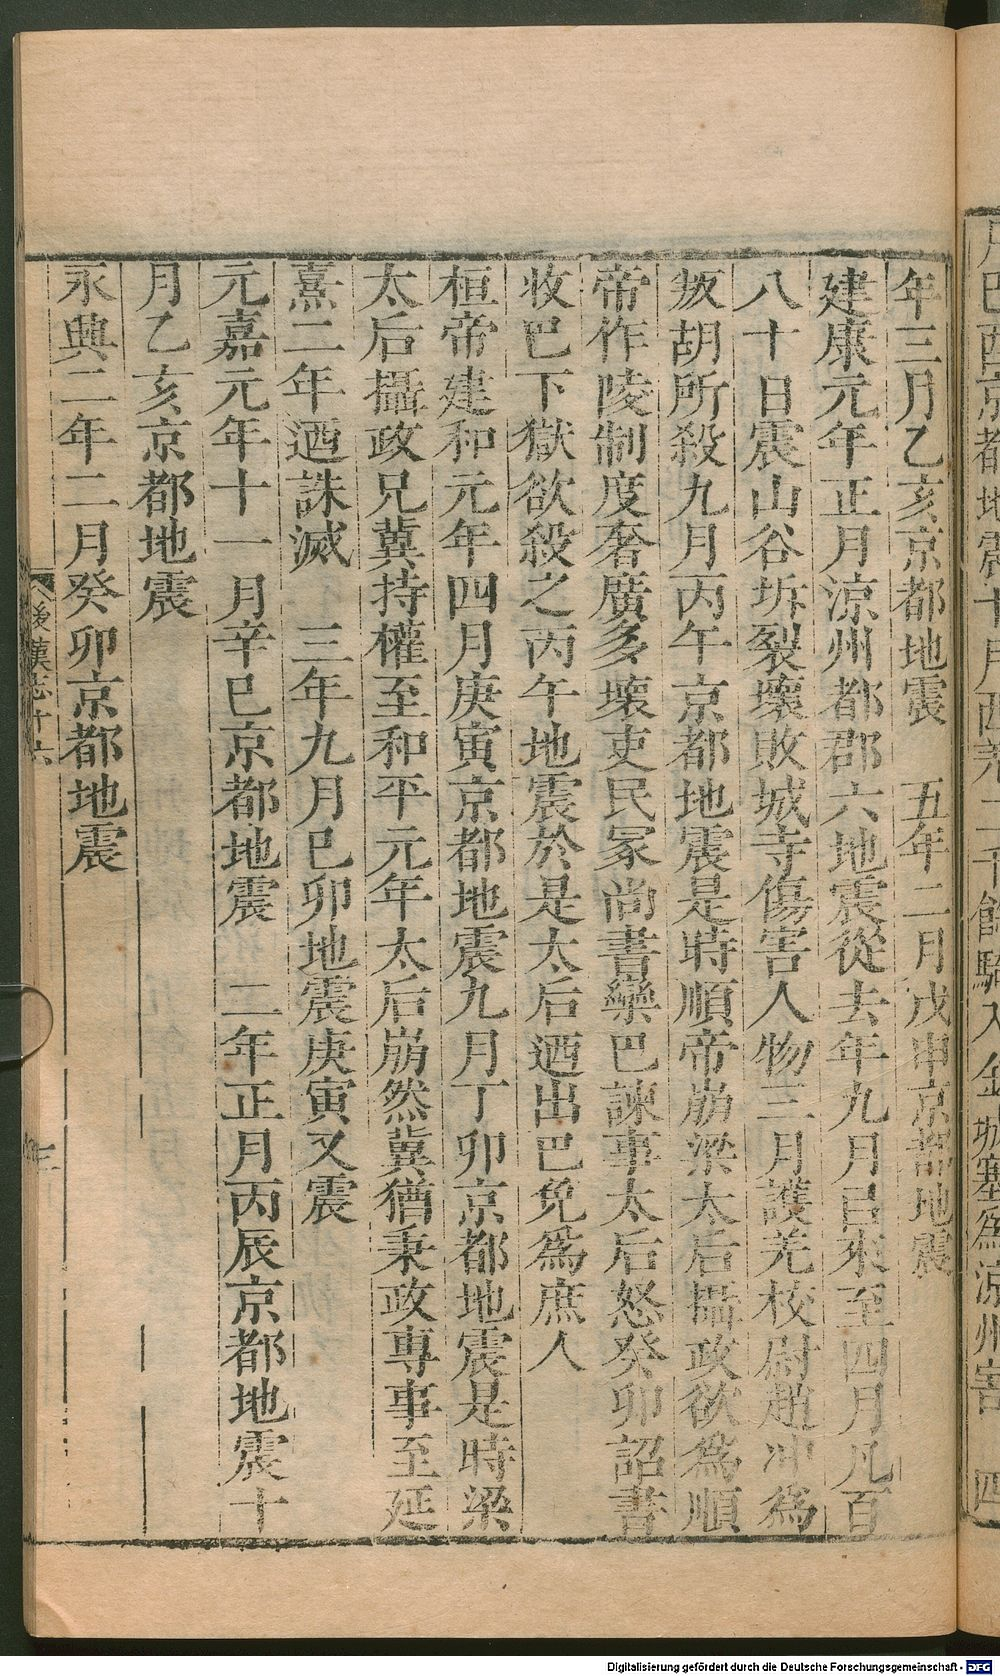 月己酉京都地震十月西羌二千餘騎入金城塞爲涼州害 四
年三月乙亥京都地震 五年二月戊申京都地震
建康元年正月涼州都郡六地震從去年九月已來至四月凡百
八十日震山谷坼裂壞敗城寺傷害人物三月護羌校尉趙冲爲
叛胡所殺九月丙午京都地震是時順帝崩梁太后攝政欲爲順
帝作陵制度奢廣多壞吏民冢尚書欒巴諫事太后怒癸卯詔書
收巴下獄欲殺之丙午地震於是太后迺出巴免爲庶人
桓帝建和元年四月庚寅京都地震九月丁卯京都地震是時梁
太后攝政兄冀持權至和平元年太后崩然冀猶秉政專事至延
熹二年迺誅滅 三年九月巳卯地震庚寅又震
元嘉元年十一月辛巳京都地震 二年正月丙辰京都地震十
月乙亥京都地震
永興二年二月癸卯京都地震
後漢志十六
三
Digitalisierung gefördert durch die Deutsche Forschungsgemeinschaft - DFG